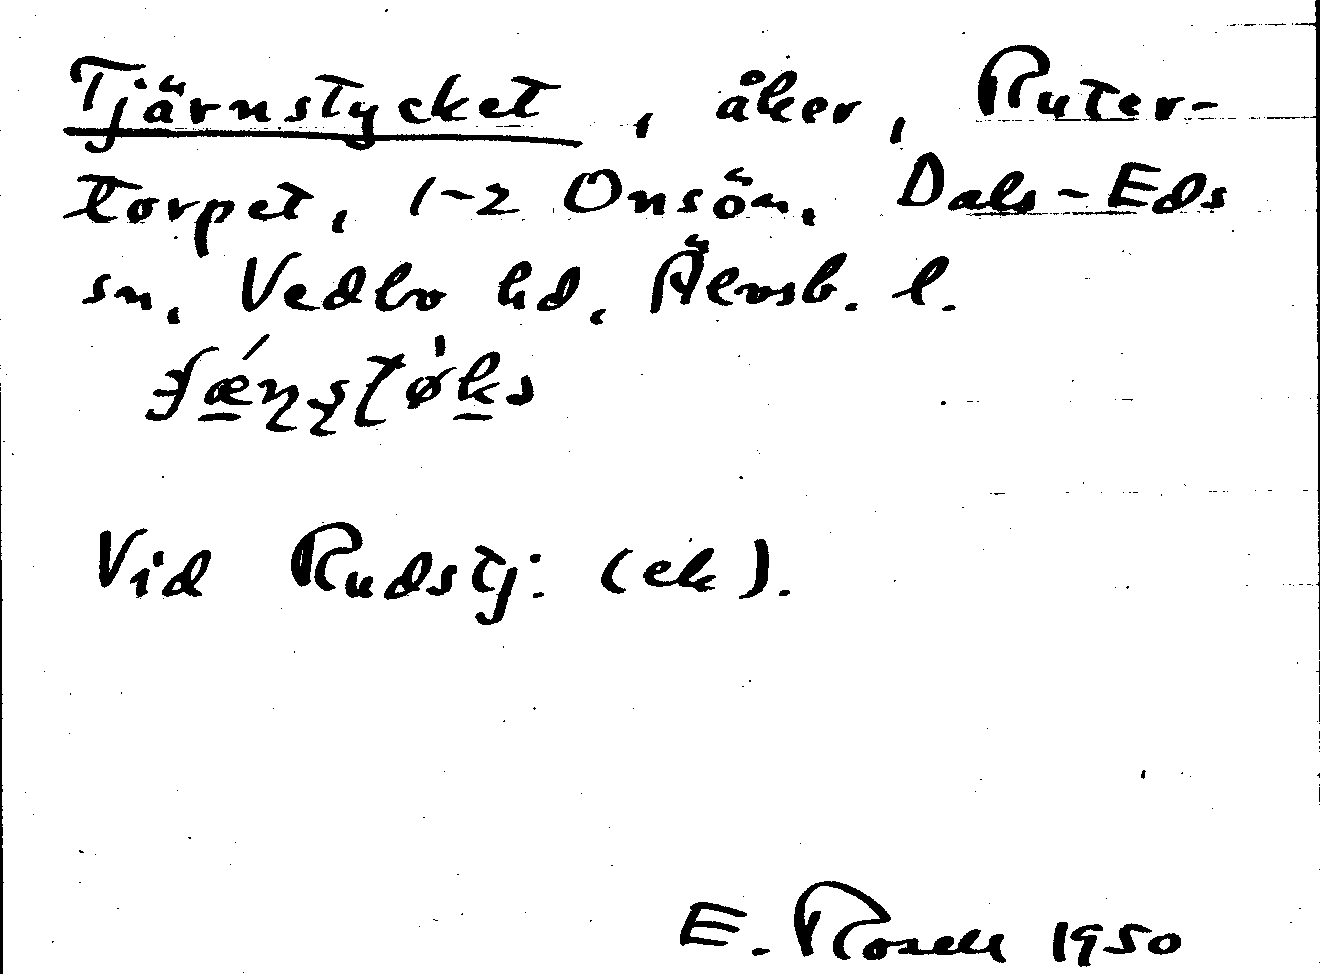 Tjärnstycket, åker, Ruter-
torpet, 1-2 Onsön, Dals-Eds
sn, Vedbo hd, Älvsb. l.
Vid Rudstj: (ek).
E. Rosell 1950